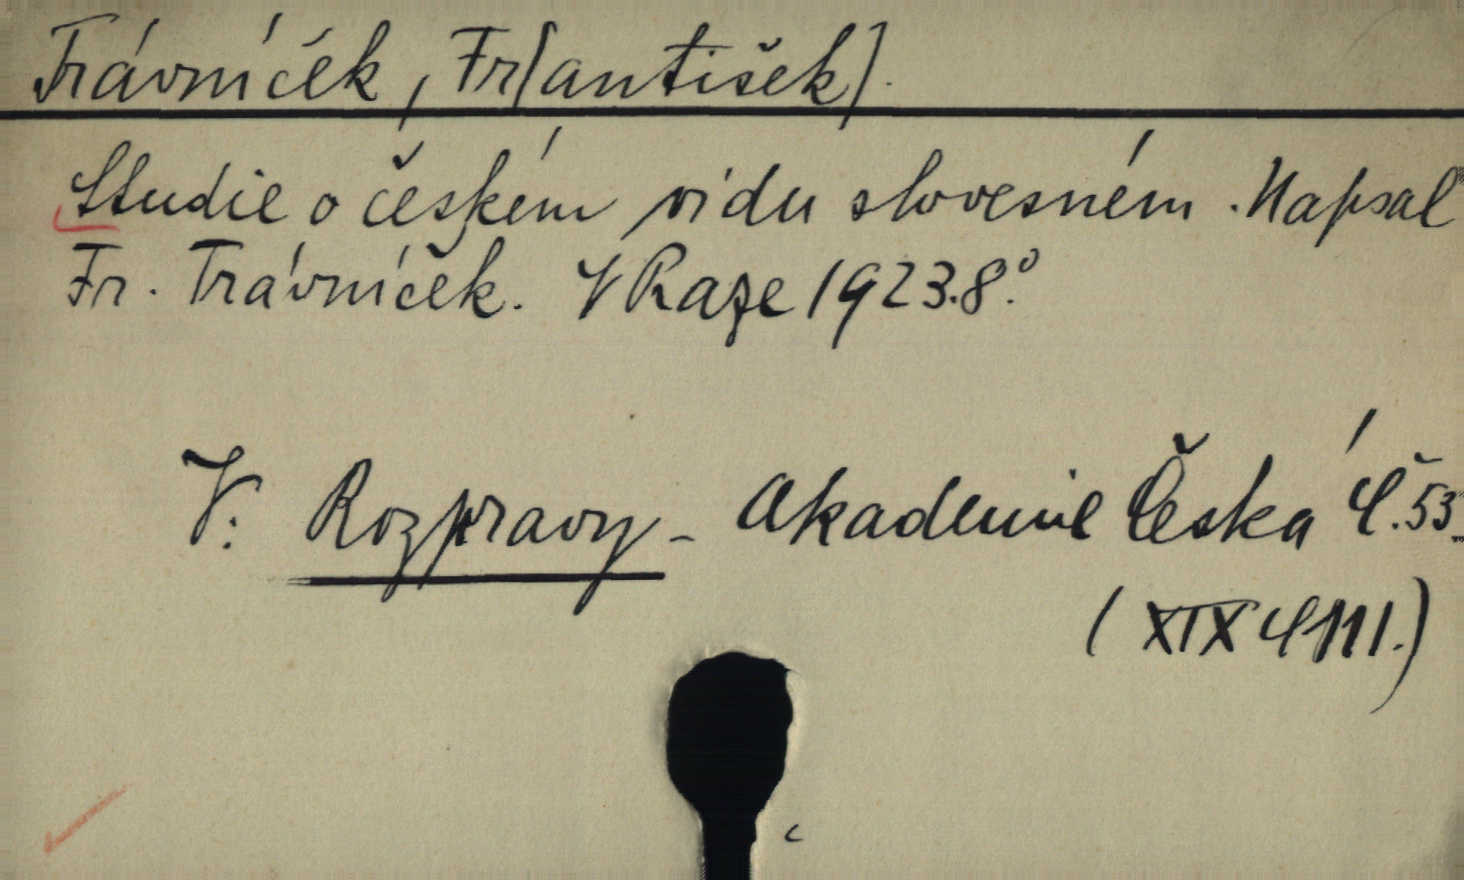 Trávníček, Fr[antišek].
Studie o českém vidu slovesném. Napsal
Fr. Trávníček. V Praze 1923. 8.º
V: Rozpravy - Akademie Česká č. 53
(XIX 4111.)